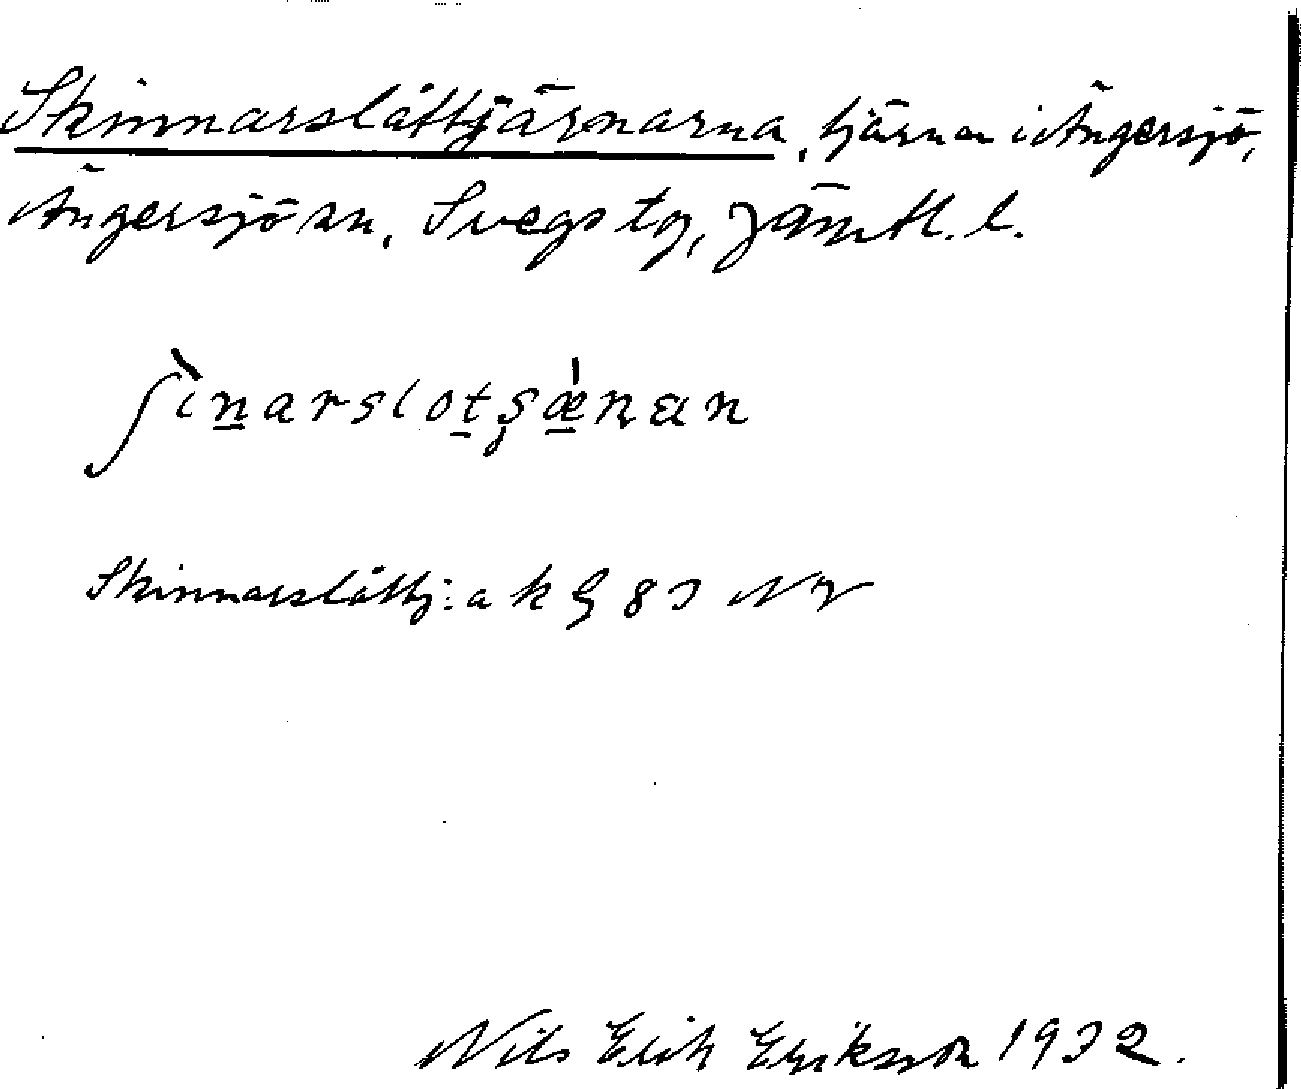 Skinnarslåttjärnarna, tjärnar i Ängersjö,
Ängersjö sn, Svegs tg, Jämtl. l.
ʃìnarslotʂǽnan
Skinnarslåttj:a k G 83 NV
Nils Erik Erikson 1932.